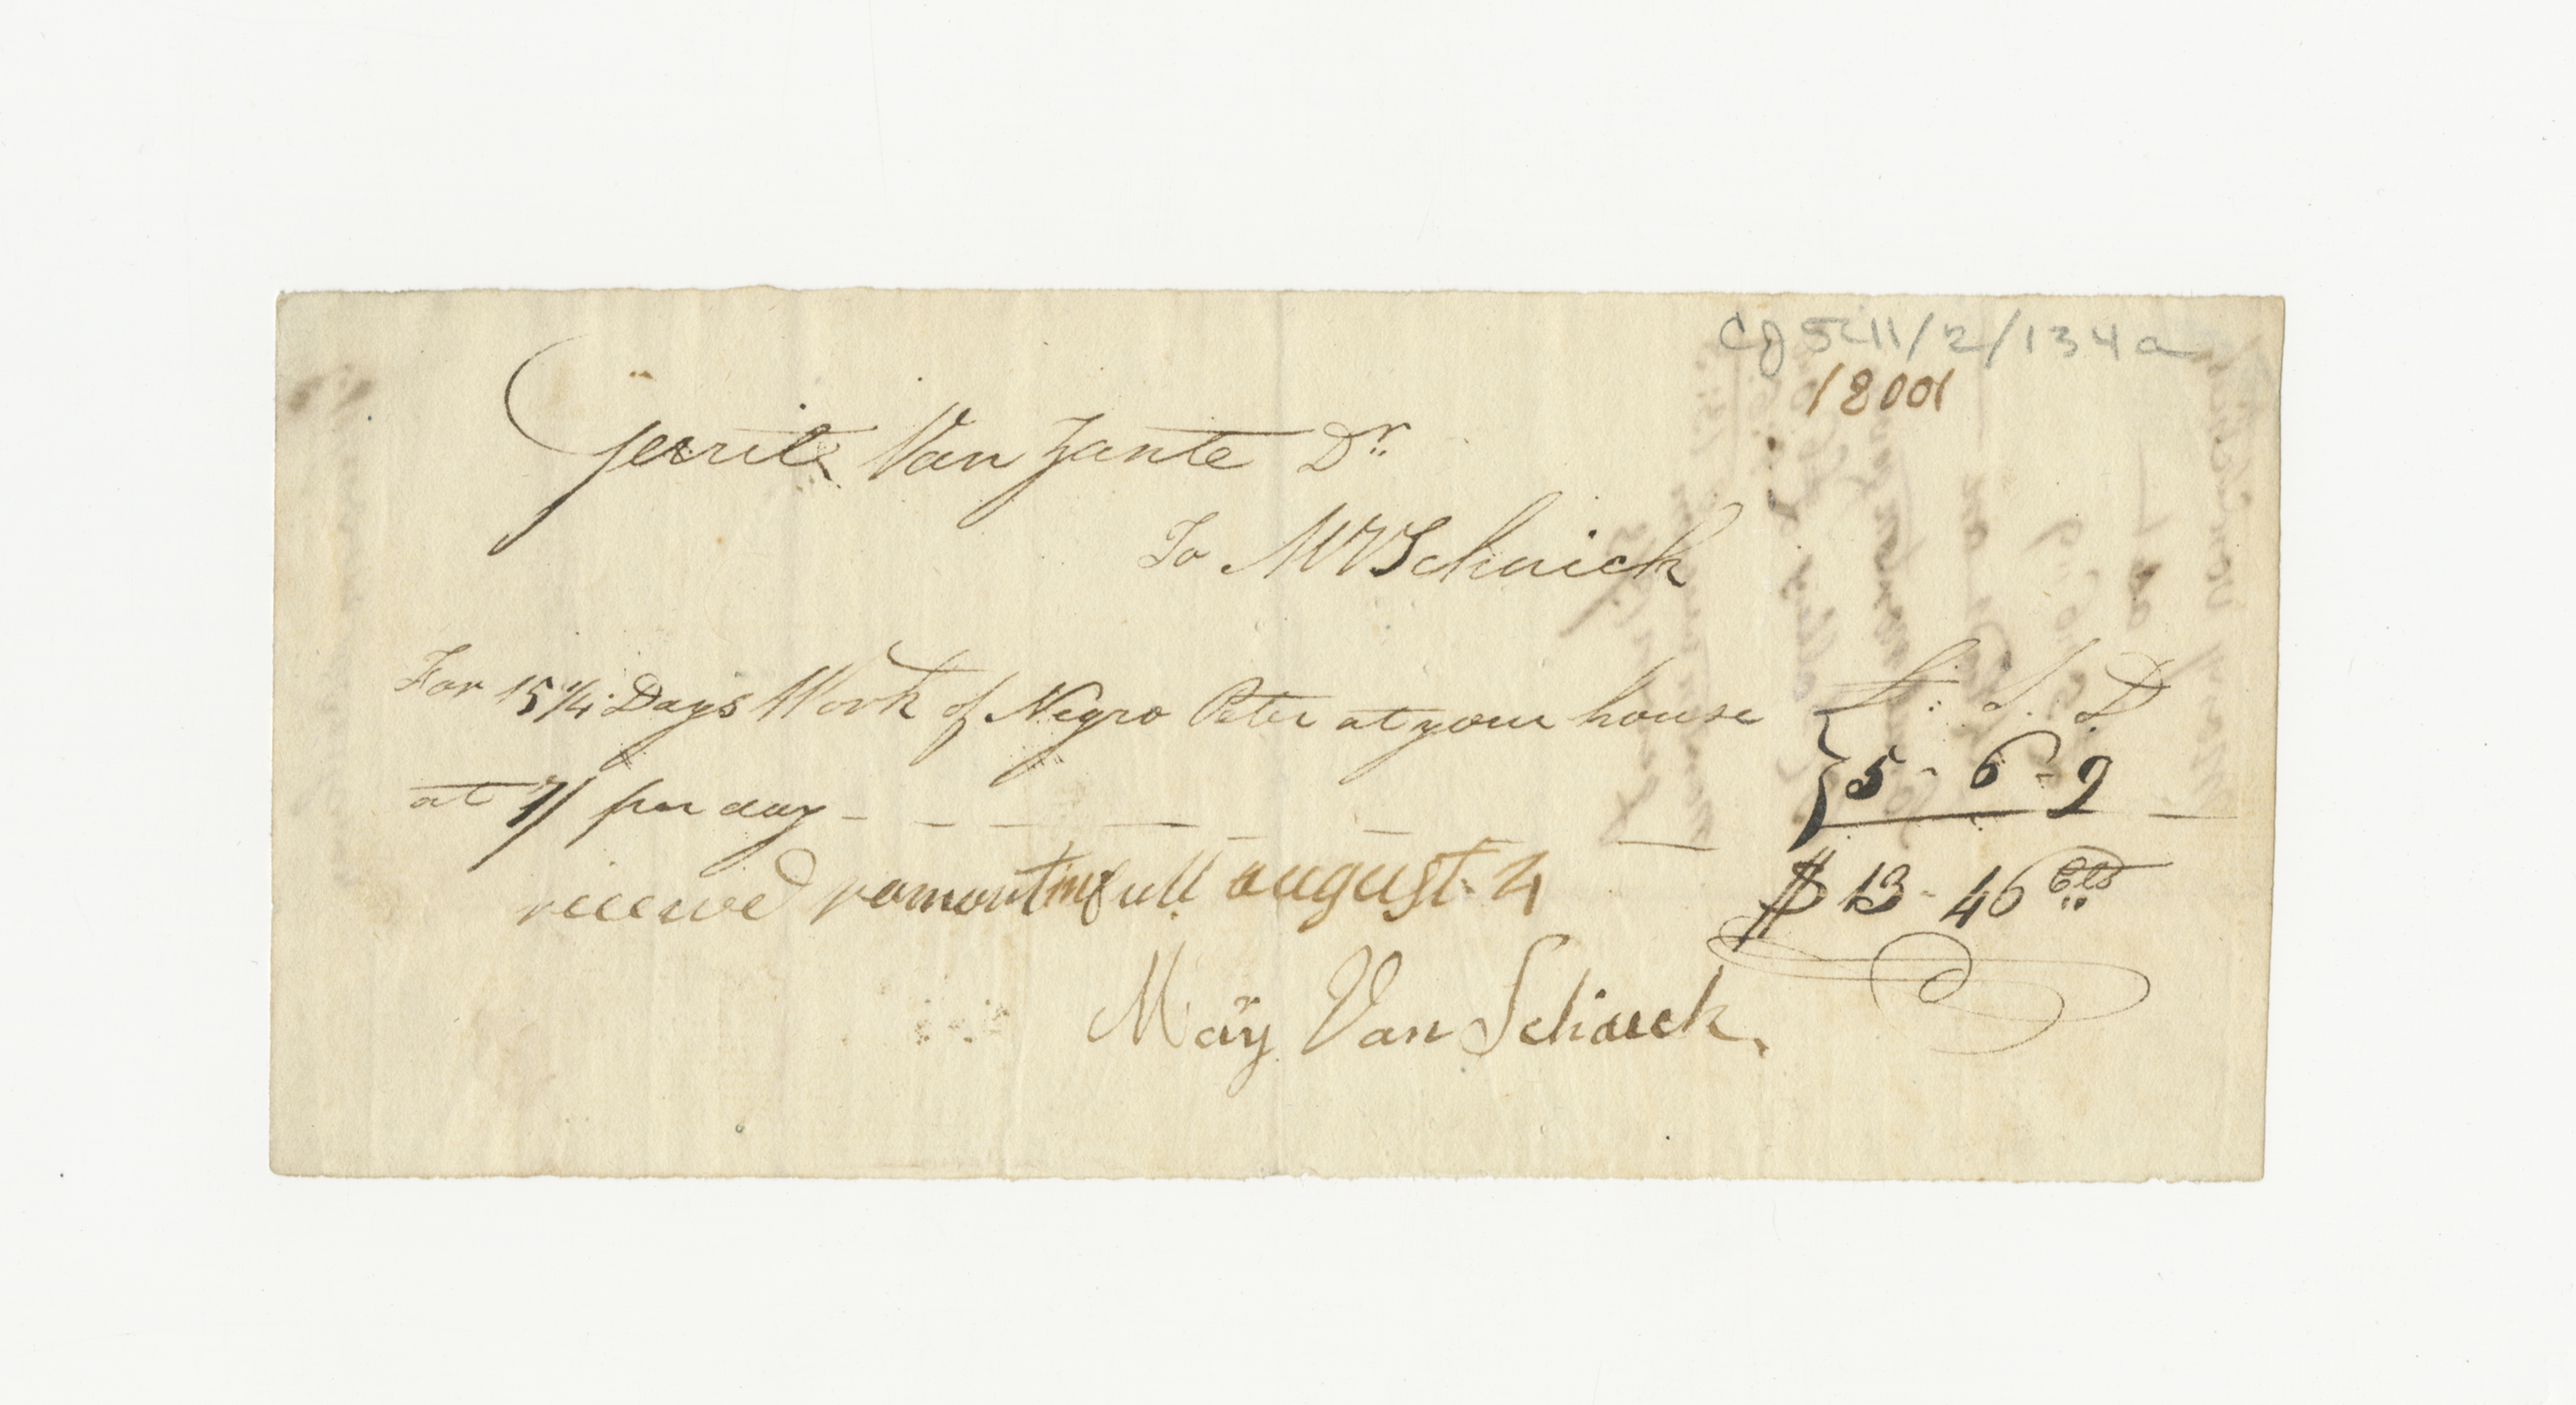 CG 5411/2/134a
18001
Gerrit Van Zante Dr
To MVSchaick
For 15 1/4 Days Work of Negro Peter at your house
L: S. D
at 7/ per day
5 - 6 - 9
$ 13 - 46 Cts
received in full august 4
Mary Van Schaick